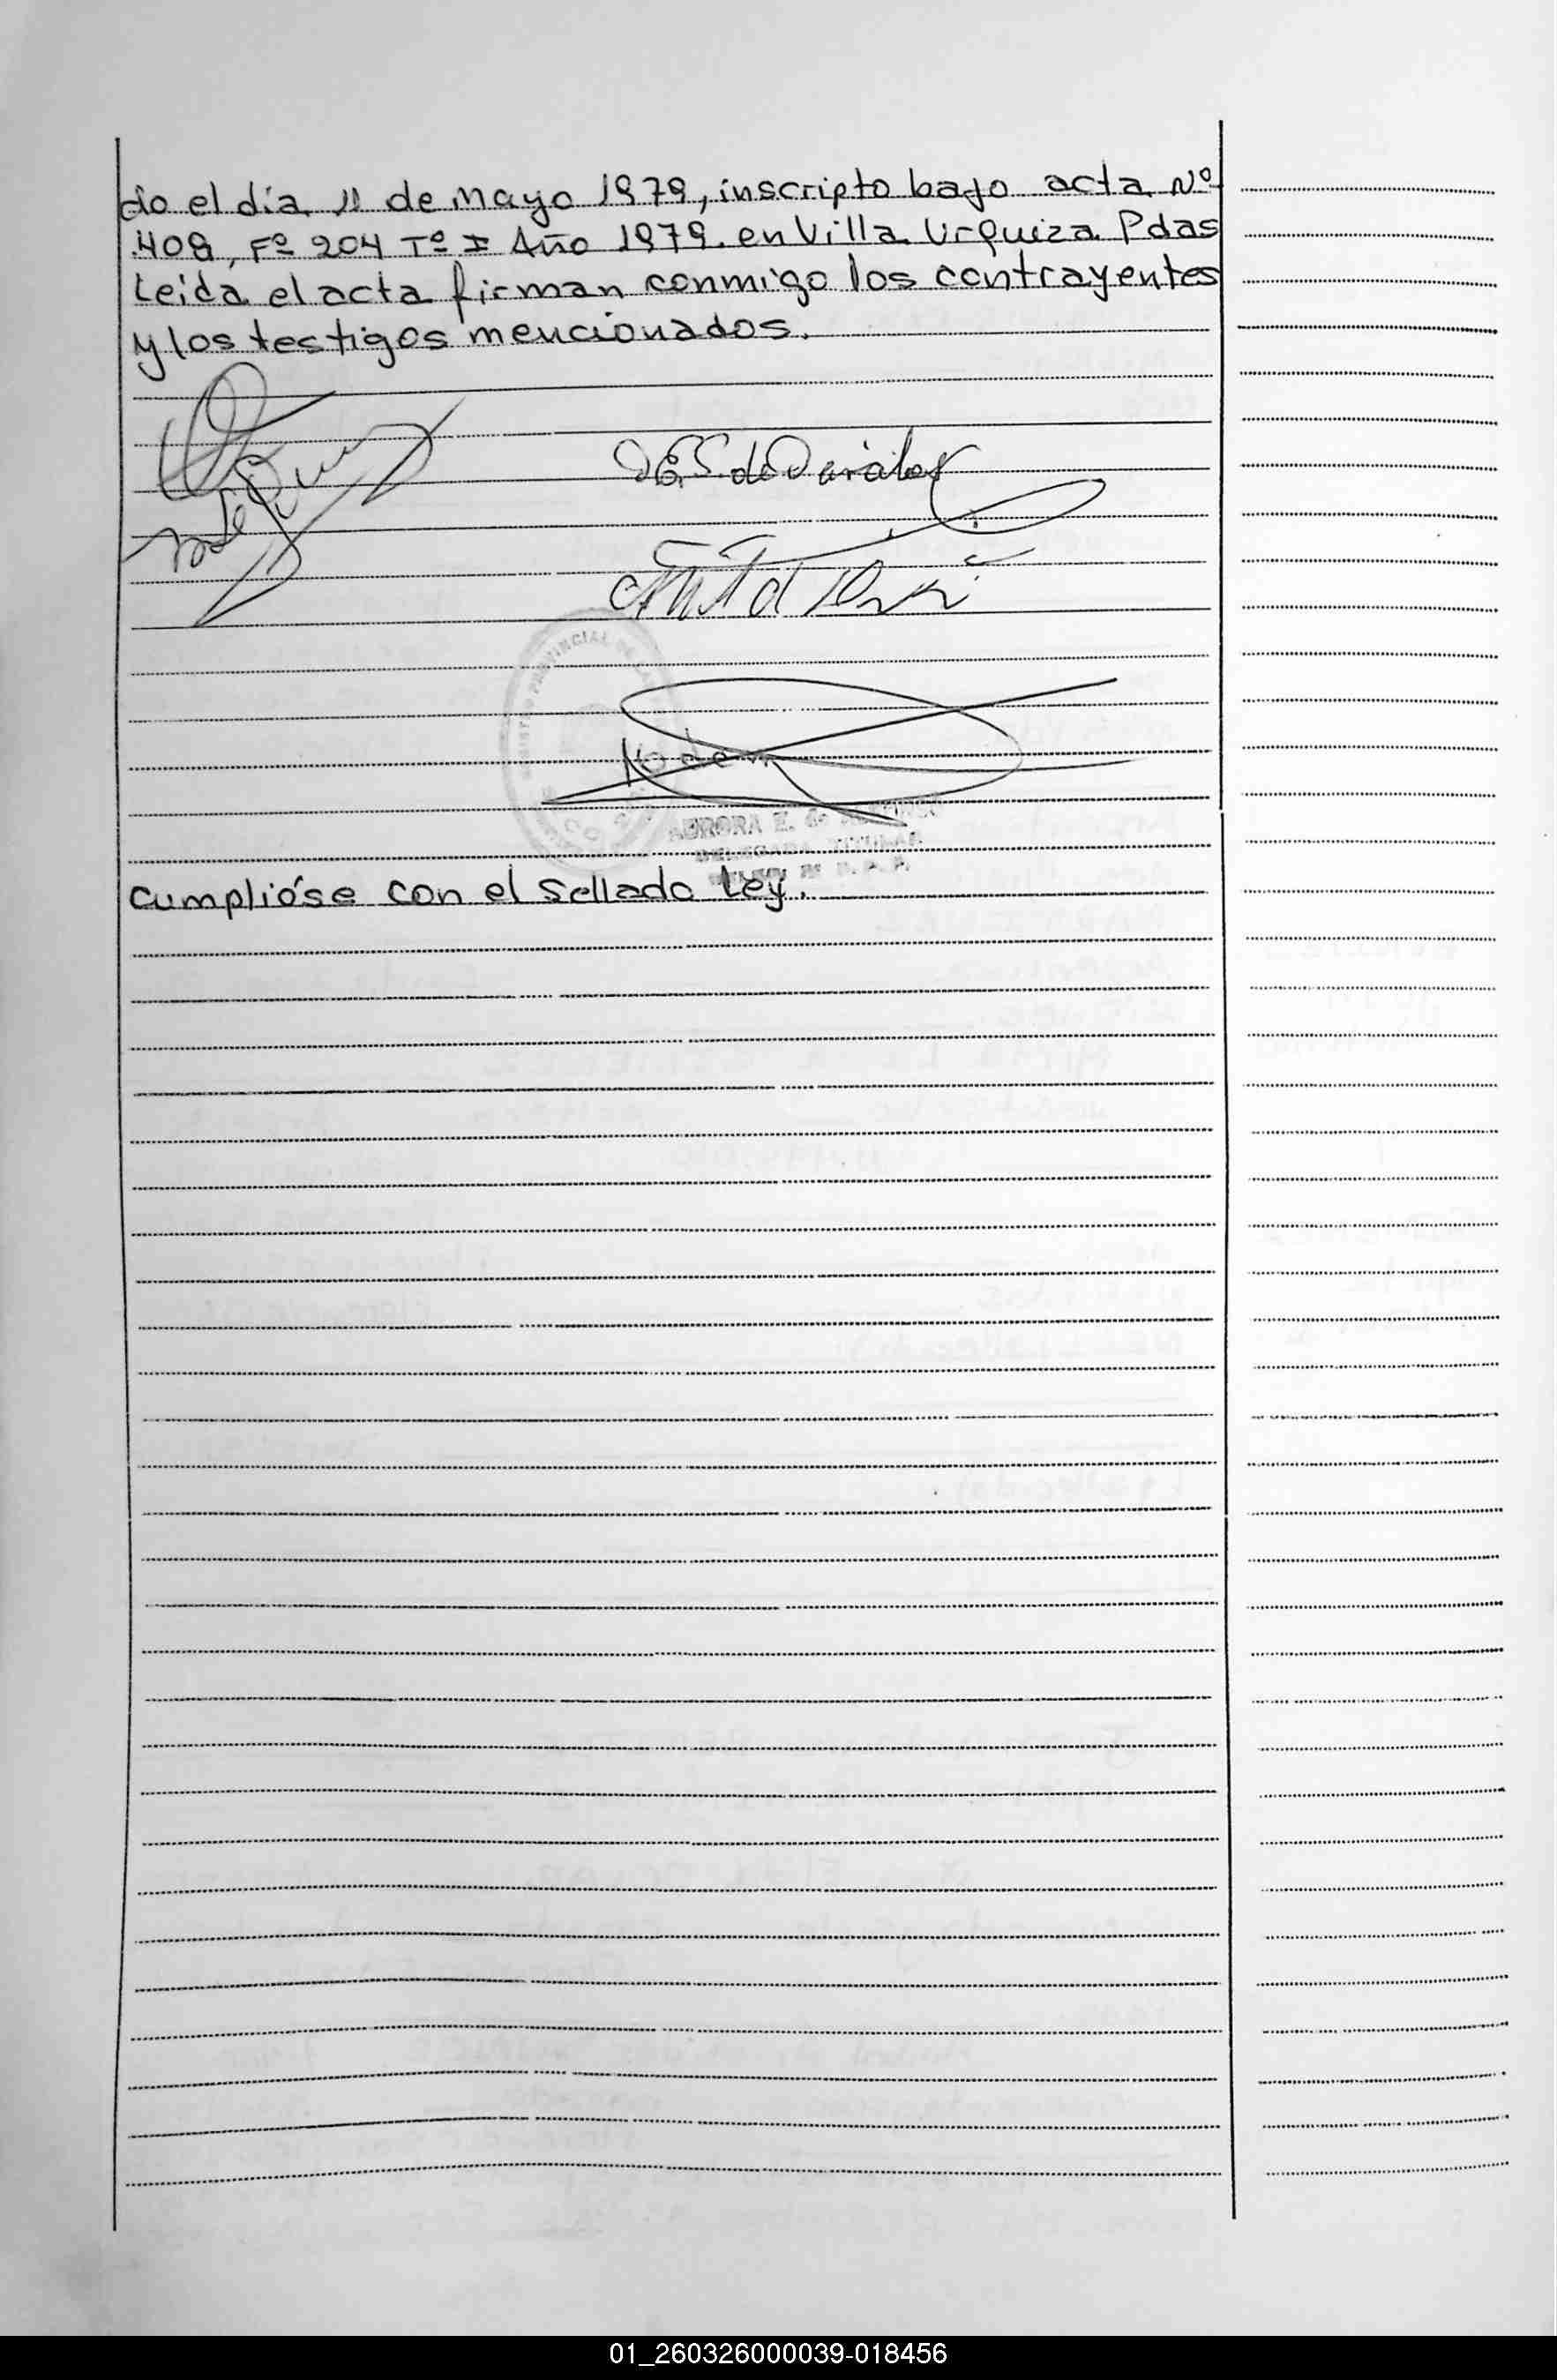 do el día 11 de Mayo 1979, inscripto bajo acta Nº
408, Fº 204 Tº I Año 1979. en Villa Urquiza Pdas
Leida el acta firman conmigo los contrayentes
y los testigos mencionados.
PROVINCIAL DE
AURORA E. de
DELEGADA TITULAR
Cumplióse con el Sellado Ley.
01_260326000039-018456